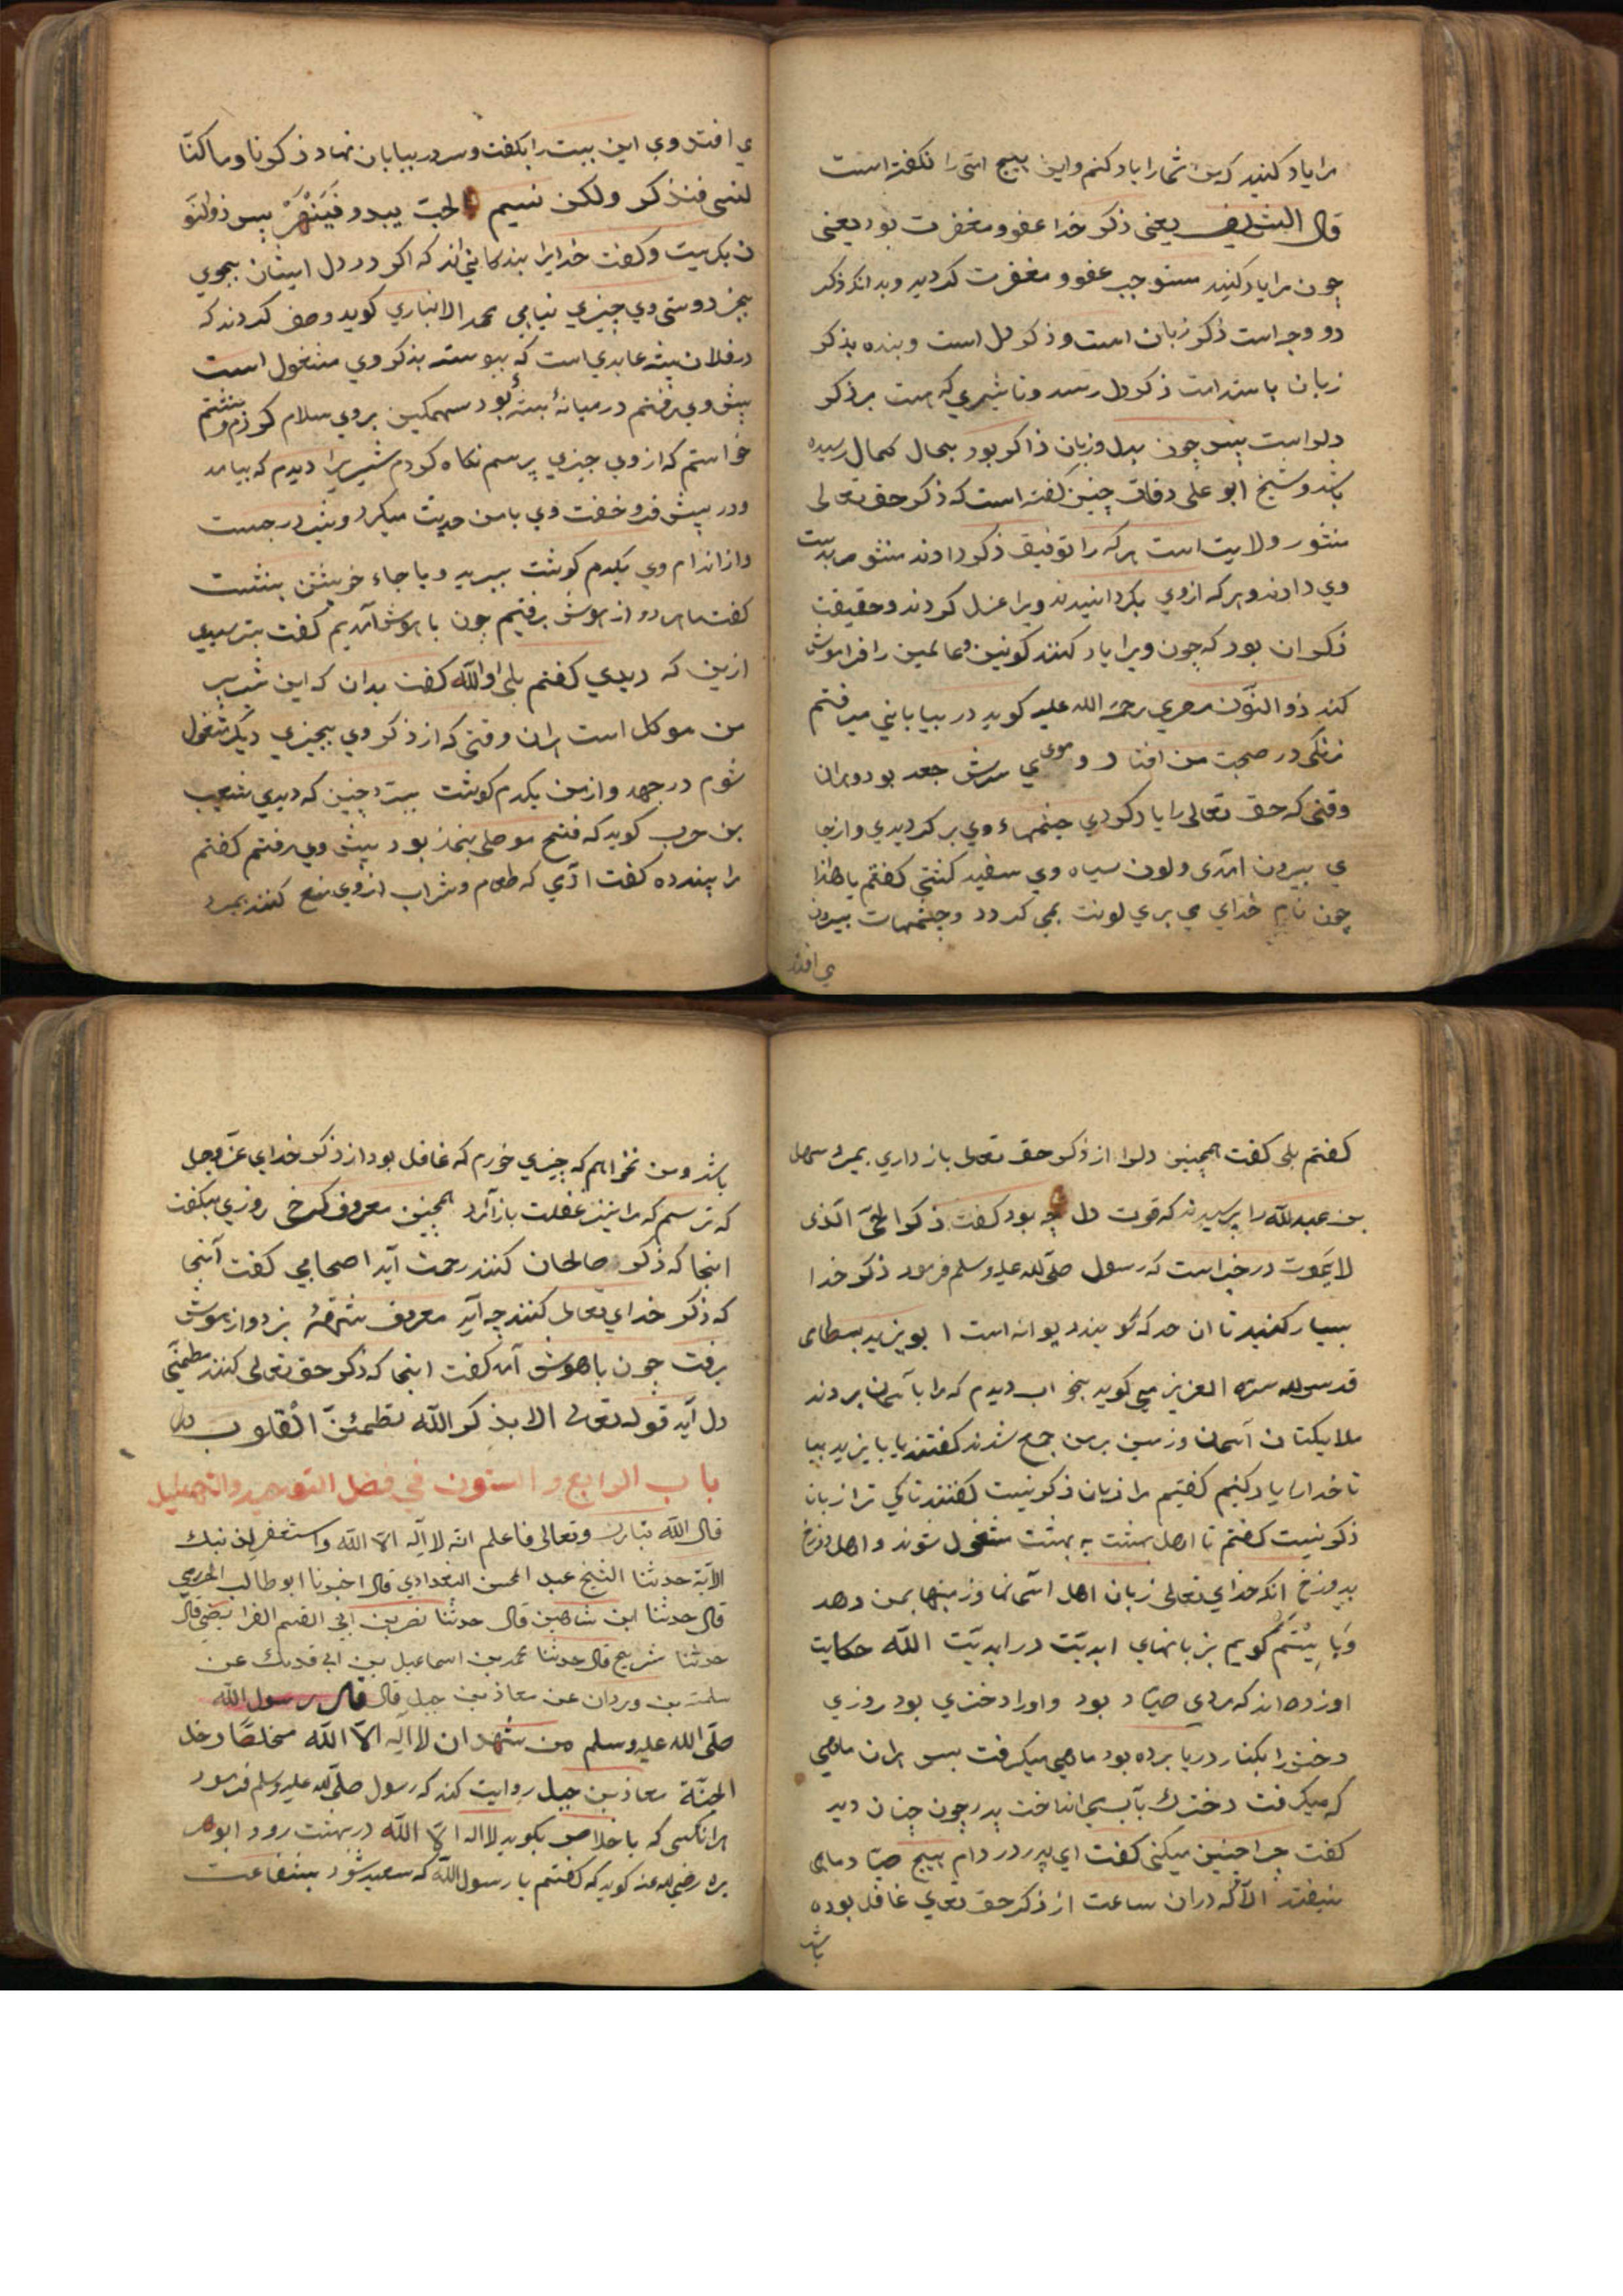 مرا یاد کنید که من شما را یاد کنم و این هیچ امتی را نکفته است
قال الشیخ یعنی ذکر خدا عفو و مغفرت بود یعنی
چون مرا یاد کنید مستوجب عفو و مغفرت کردید و بدانکه ذکر
دو وجه است ذکر زبان است و ذکر دل است و بنده بذکر
زبان باستدامت ذکر دل رسد و تاثیری که هست مر ذکر
دلراست پس چون بدل و زبان ذاکر بود بحال کمال رسیده
باشد و شیخ ابو علی دقاق چنین کفته است که ذکر حق تعالی
منشور ولایت است هر که را توفیق ذکر دادند منشور بدست
وی دادند و هر که ازوی بکردانیدند ویرا عزل کردند و حقیقت
ذکر ان بود که چون ویرا یاد کنند کونین و عالمین را فراموش
کند ذو النون مصری رحمة الله علیه کوید در بیابانی میرفتم
زنکی در صحبت من افتاد و موی سرش جعد بود و هران
وقتی که حق تعالی را یاد کردی چشمهاء وی بر کردیدی و از جا
ی بیرون آمدی و لون سیاه وی سفید کشتی کفتم یا هذا
چون نام خدای می بری لونت می کردد و چشمهات بیرون
می افتد
ی افتد وی این بیت را بکفت و سر در بیابان نهاد ذکرنا و ما کنا
لننسی فنذکر ولکن نسیم الحب یبدو فینهر پس ذوالنو
ن بکریست و کفت خدایرا بندکانی اند که اکر در دل ایشان بجوی
بجز دوستی وی چیزی نیابی محمد الانباری کوید وصف کردند که
در فلان بیشه عابدی است که پیوسته بذکر وی مشغول است
پیش وی رفتم در میانۀ بیشه بود سهمکین بروی سلام کردم و بنشستم
خواستم که ازوی چیزی پرسم نکاه کردم شیریرا دیدم که بیامد
و در پیش فرو خفت وی با من حدیث میکرد و شیر درجست
و از اندام وی یکدم کوشت ببرید و با جاء خویشتن بنشست
کفت ما هر دو از هوش برفتیم چون با هوش آمدیم کفت بترسیدی
ازین که دیدی کفتم بلی والله کفت بدان که این شیر بر
من موکل است هران وقتی که از ذکر وی بچیزی دیکر مشغول
شوم درجهد و از من یکدم کوشت ببرد چنین که دیدی شعیب
بن حرب کوید که فتح موصلی بنماز بود پیش وی رفتم کفتم
مرا پند ده کفت آدمی که طعام و شراب ازوی منع کنند بمیرد
کفتم بلی کفت همچنین دلرا از ذکر حق تعالی بازداری بمیرد سهل
بن عبدالله را پرسیدند که قوت دل چه بود کفت ذکر الحی الذی
لا یموت در خبر است که رسول صلی الله علیه وسلم فرمود ذکر خدا
بسیار کنید تا ان حد که کویند دیوانه است ابو یزید بسطامی
قدس الله سره العزیز می کوید بخواب دیدم که مرا بآسمان بردند
ملایکتان آسمان و زمین بر من جمع شدند کفتند یا بایزید بیا
تا خدایرا یاد کنیم کفتم مرا زبان ذکر نیست کفتند تا کی ترا زبان
ذکر نیست کفتم تا اهل بهشت به بهشت مشغول شوند و اهل دوزخ
بدوزخ آنکه خدای تعالی زبان اهل آسمانها و زمینها بمن دهد
کویم بزبانهای ابدیت در ابدیت الله حکایت
اورده اند که مردی صیاد بود و اورا دختری بود روزی
دختر را بکنار دریا برده بود ماهی میکرفت پس هران ماهی
که میکرفت دخترک بآب می انداخت پدر چون چنان دید
کفت چرا چنین میکنی کفت ای پدر در دام هیچ صیاد ماهی
نیفتد الا که دران ساعت از ذکر حق تعالی غافل بوده
باشد
باشد و من نخواهم که چیزی خورم که غافل بود از ذکر خدای عز و جل
که ترسم که مرا نیز غفلت بار آرد همچنین معروف کرخی روزی میکفت
اینجا که ذکر صالحان کنند رحمت آید اصحابی کفت آنجا
که ذکر خدای تعالی کنند چه آید معروف شهقۀ بزد و از هوش
برفت چون با هوش آمد کفت اینجا که ذکر حق تعالی کنند مطمئنی
دل آید قوله تعالی الا بذکر الله تطمئن القلوب
باب الرابع والستون في فضل التوحید والتهلیل
قال الله تبارك وتعالی فاعلم انه لا اله الا الله واستغفر لذنبك
الآیة حدثنا الشیخ عبد المحسن البغدادي قال اخبرنا ابو طالب
قال حدثنا ابن شاهین قال حدثنا نصر بن ابی القسم الفرائضی قال
حدثنا شریح قال حدثنا محمد بن اسماعیل بن ابی فدیك عن
سلمة بن وردان عن معاذ بن جبل قال قال رسول الله
صلی الله علیه وسلم من شهد ان لا اله الا الله مخلصا دخل
الجنة معاذ بن جبل روایت کند که رسول صلی الله علیه وسلم فرمود
هرانکسی که باخلاص بکوید لا اله الا الله در بهشت رود ابوهر
یره رضی الله عنه کوید که کفتم یا رسول الله که سعید شود بشفاعت